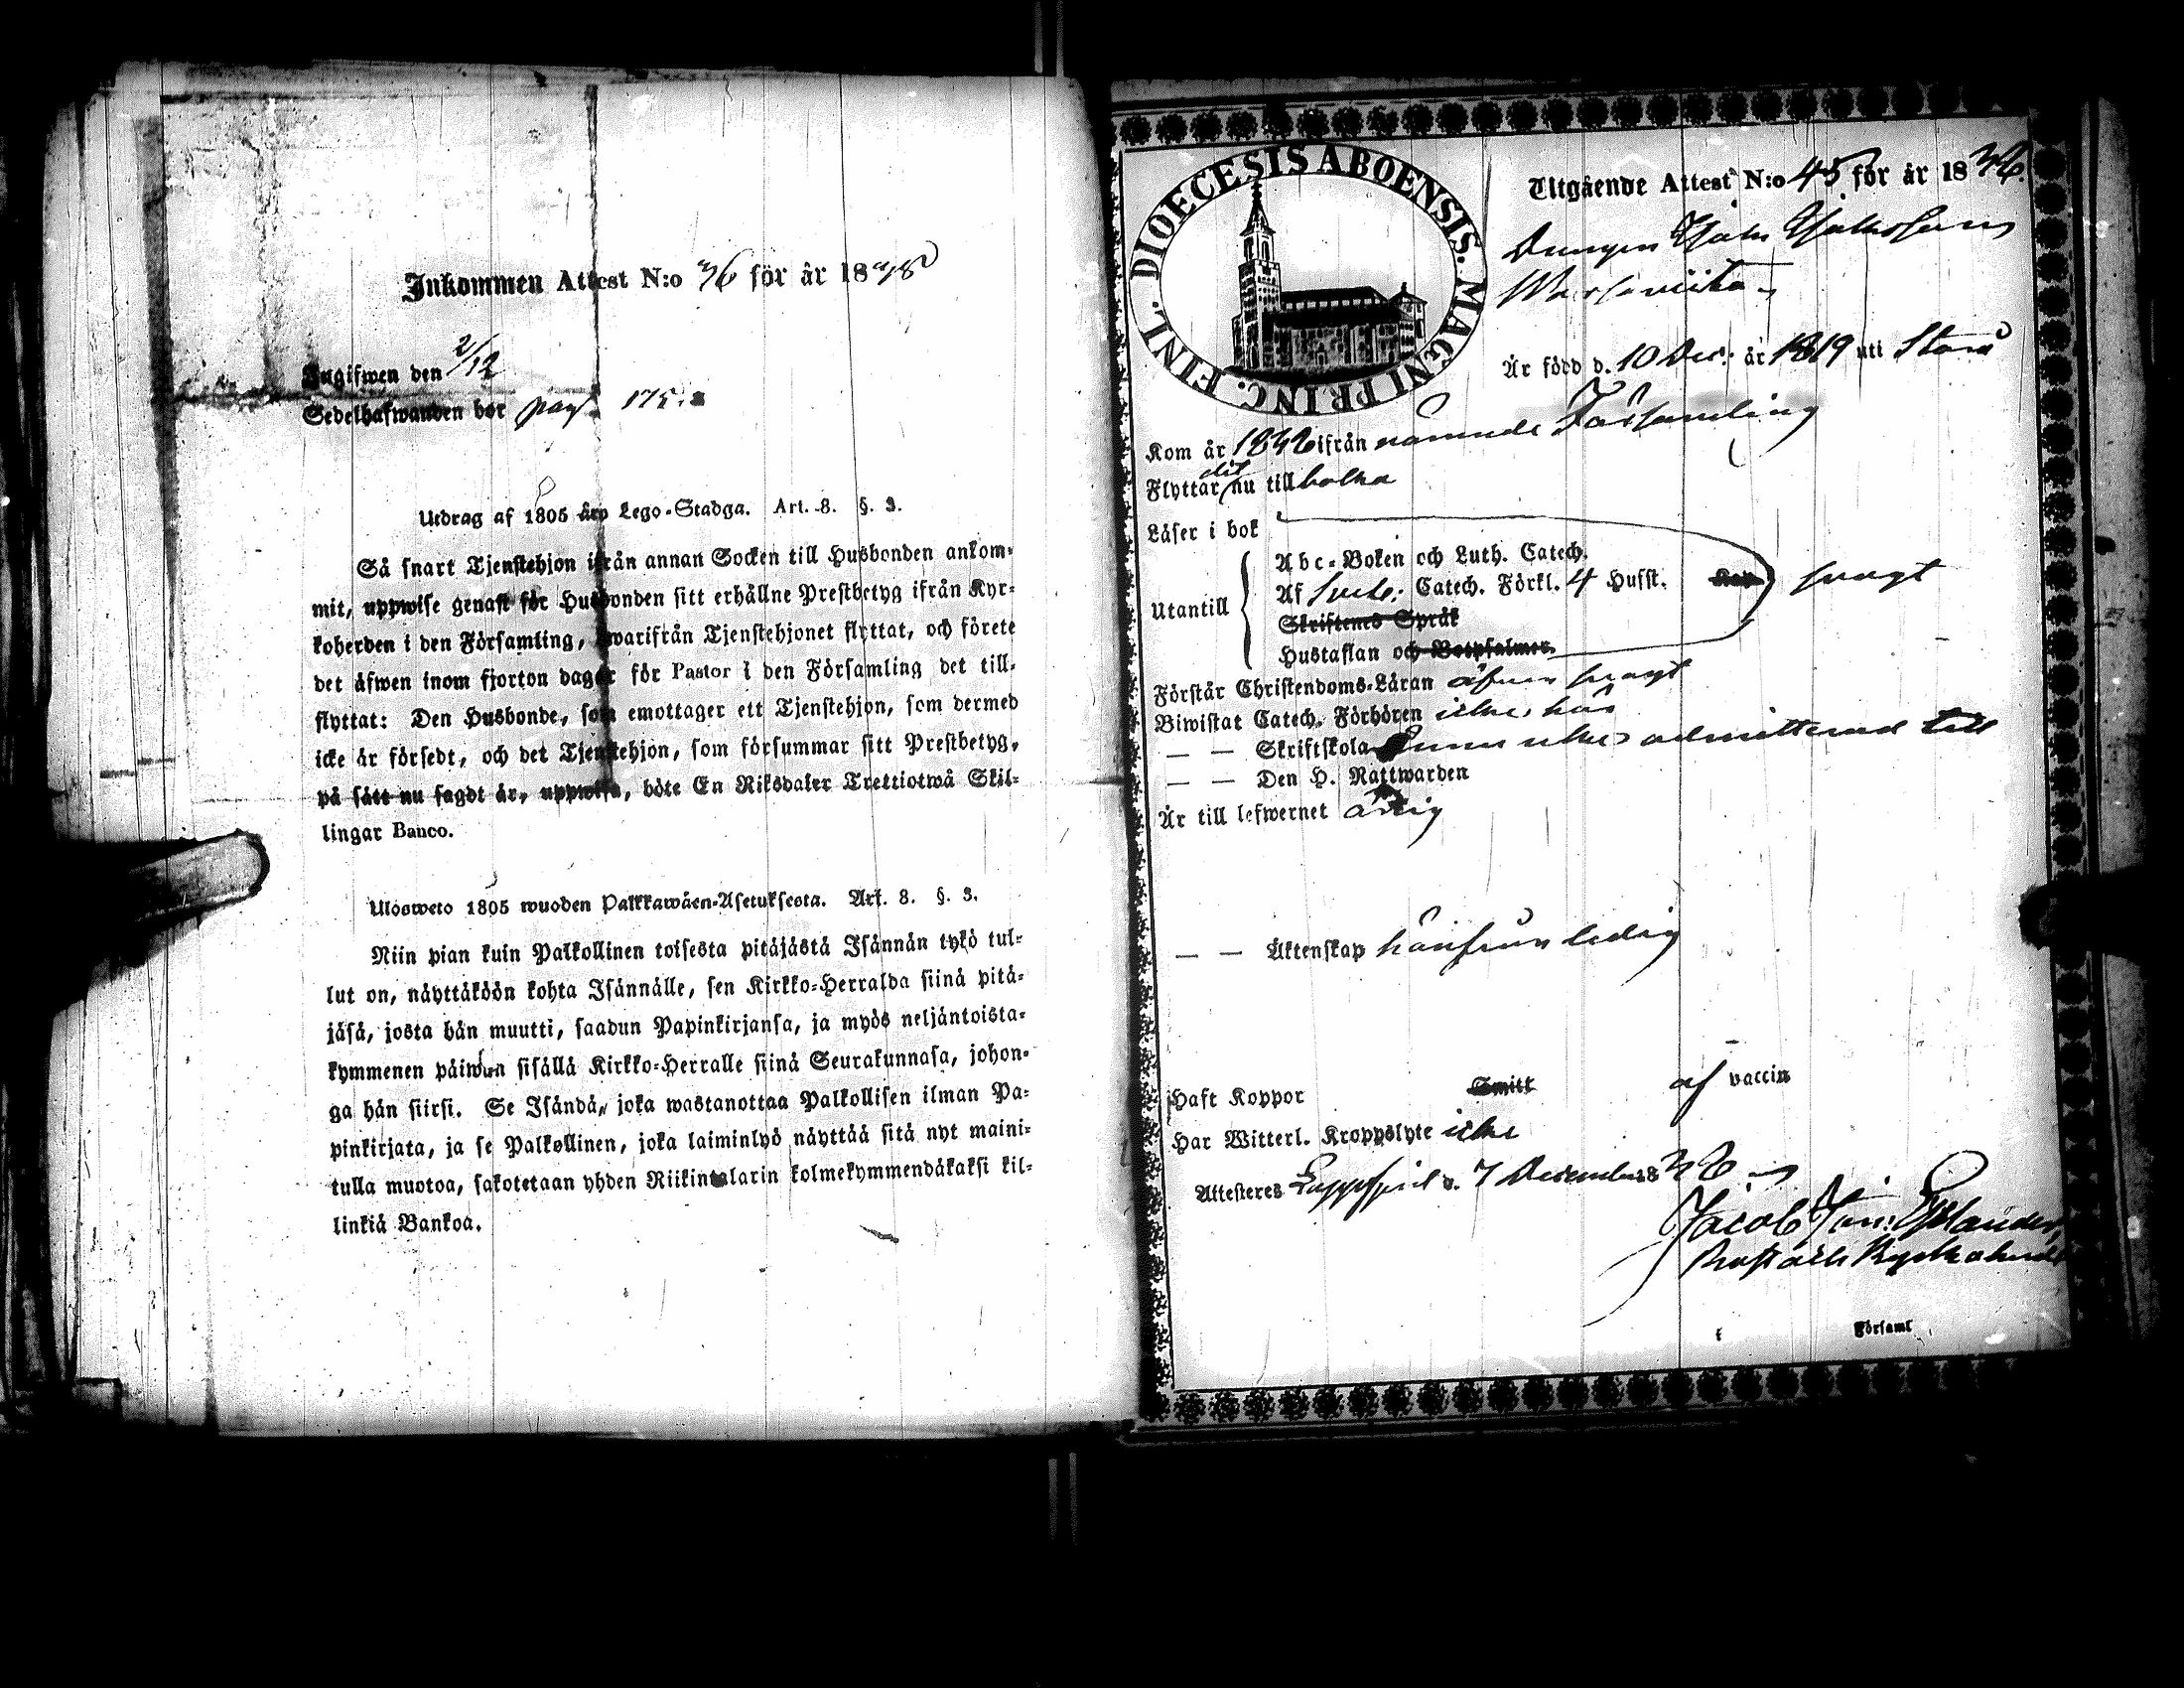 Inkommen Attest N:o för år 18
Ingifwen den 2/12
Sedelhafwanden bor pag. 175.
Utdrag af 1805 års Lego-Stadga. Art. 8. §. 3.
Så snart Tjenstehjon ifrån annan Socken till Husbonden ankom-
mit, uppwise genast för Husbonden sitt erhållne Prestbetyg ifrån Kyr-
koherden i den Församling, hwarifrån Tjenstehjonet flyttat, och förete
det äfwen inom fjorton dagar för Pastor i den Församling det till-
flyttat: Den Husbonde, som emottager ett Tjenstehjon, som dermed
icke är försedt, och det Tjenstehjon, som försummar sitt Prestbetyg,
på sätt nu sagdt är, uppwisa, böte En Riksdaler Trettiotwå Skil-
lingar Banco.
Ulosweto 1805 wuoden Palkkawäen-Asetuksesta. Art. 8. §. 3.
Niin pian kuin Palkollinen toisesta pitäjästä Isännän tykö tul-
lut on, näyttäköön kohta Isännälle, sen Kirkko-Herralda siinä pitä-
jäsä, josta hän muutti, saadun Papinkirjansa, ja myös neljäntoista-
kymmenen päiwän sisällä Kirkko-Herralle siinä Seurakunnasa, johon-
ga hän siirsi. Se Isändä, joka wastanottaa Palkollisen ilman Pa-
pinkirjata, ja se Palkollinen, joka laiminlyö näyttää sitä nyt maini-
tulla muotoa, sakotetaan yhden Riikintalarin kolmekymmendäkaksi kil-
linkiä Bankoa.
DIOECESIS ABOENSIS. MAGNI PRINC. FINL.
Utgående Attest N:o 45 för år 18
Är född d. 10 Dec. år 1819 uti
Kom år ifrån nämnde Församling
dit
Flyttar nu tillbaka
Läser i bok
Abc-Boken och Luth. Catech.
Utantill Af Sveb. Catech. Förkl. 4 Husst. svagt
Skriftenes Språk
Hustaflan och Botpsalmer.
Förstår Christendoms-Läran äfven svagt
Biwistat Catech. Förhören icke här
— — Skriftskola ännu icke admitterad till
— — Den H. Nattwarden
Är till lefwernet ärlig
— — Äktenskap härifrån ledig
Haft Koppor Smitt af vaccin
Har Witterl. Kroppslyte icke
Attesteres d. 7 December 18
Jacob
Prost och Kyrkoherde
Församl